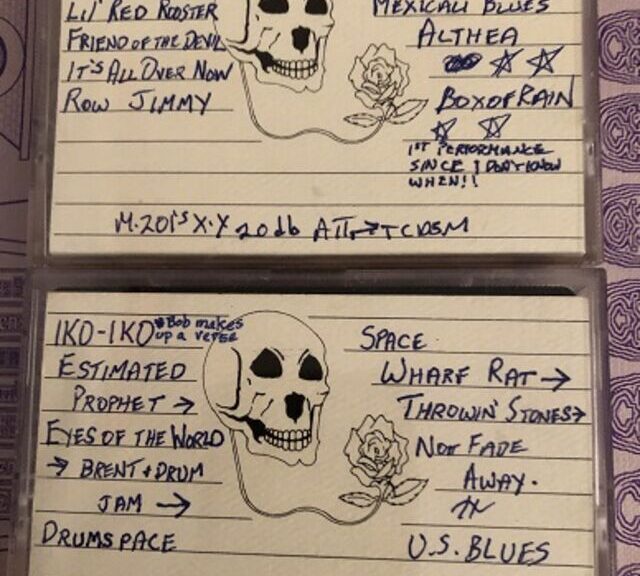 LIL' RED ROOSTER
FRIEND OF THE DEVIL
IT'S ALL OVER NOW
ROW JIMMY
MEXICALI BLUES
ALTHEA
BOX OF RAIN
1ST PERFORMANCE
SINCE I DON'T KNOW
WHEN!!
M.201'S X·Y 20db ATT→TCD5M
IKO-IKO *Bob makes
up a verse
ESTIMATED
PROPHET →
EYES OF THE WORLD
→ BRENT + DRUM
JAM →
DRUMSPACE
SPACE
WHARF RAT →
THROWIN' STONES→
NOT FADE
AWAY.
U.S. BLUES